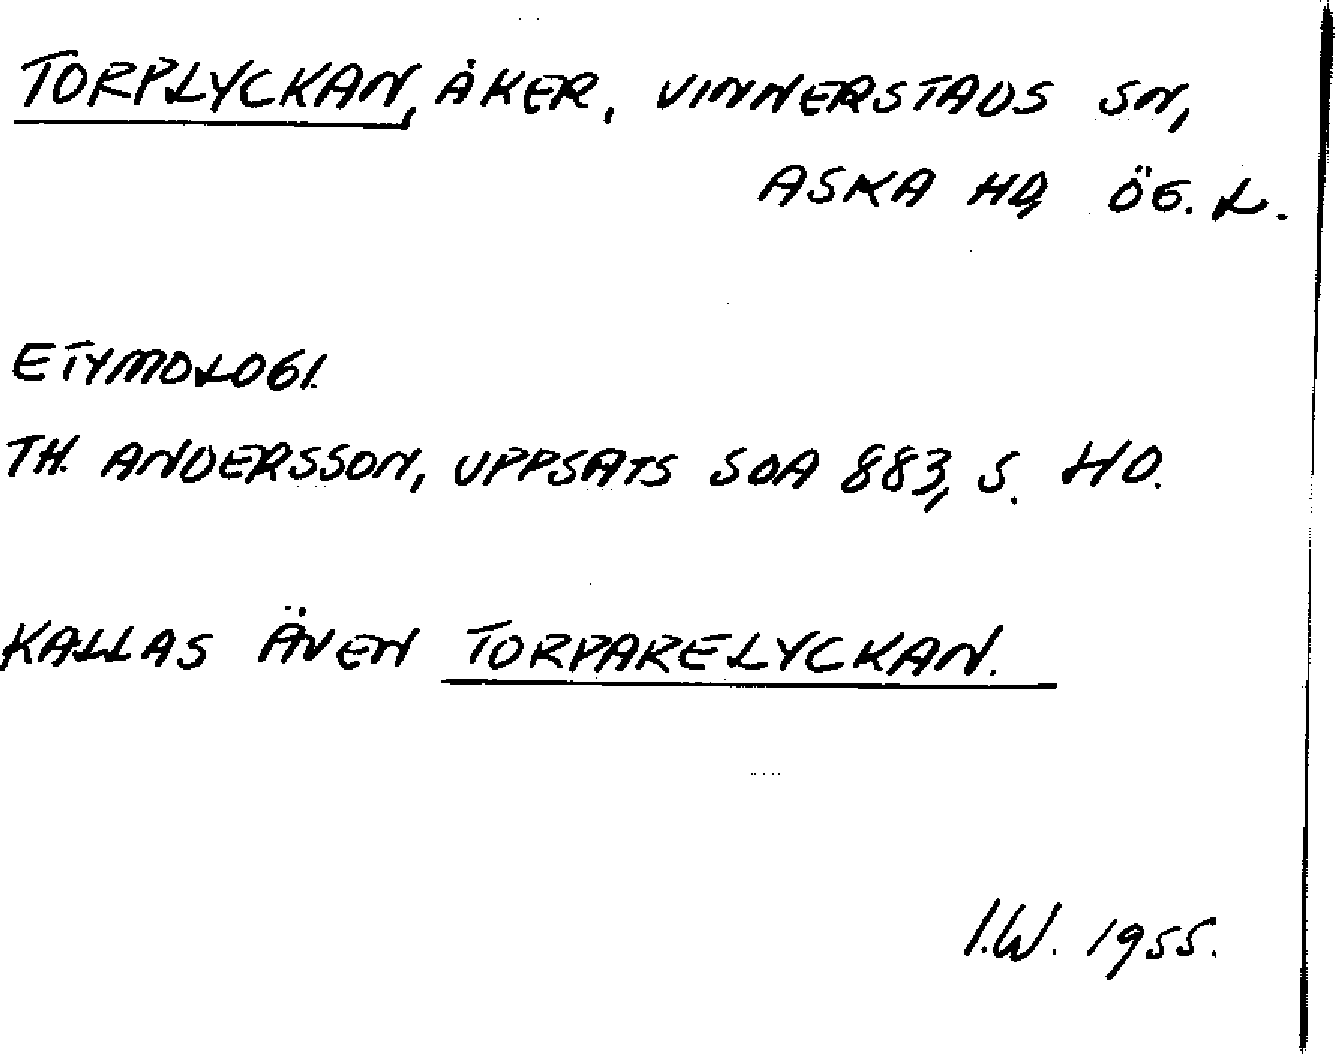 TORPLYCKAN, ÅKER, VINNERSTADS SN,
ASKA HD, ÖG. L.
ETYMOLOGI.
TH. ANDERSSON, UPPSATS SOA 883, S. 40.
KALLAS ÄVEN TORPARELYCKAN.
I.W. 1955.